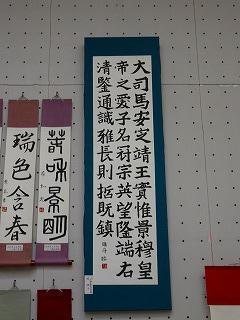 大司馬安定靖王實惟景穆皇
帝之愛子名冠宗英望隆端右
清鑒通識雅長則哲既鎮
春和景明
瑞色含春